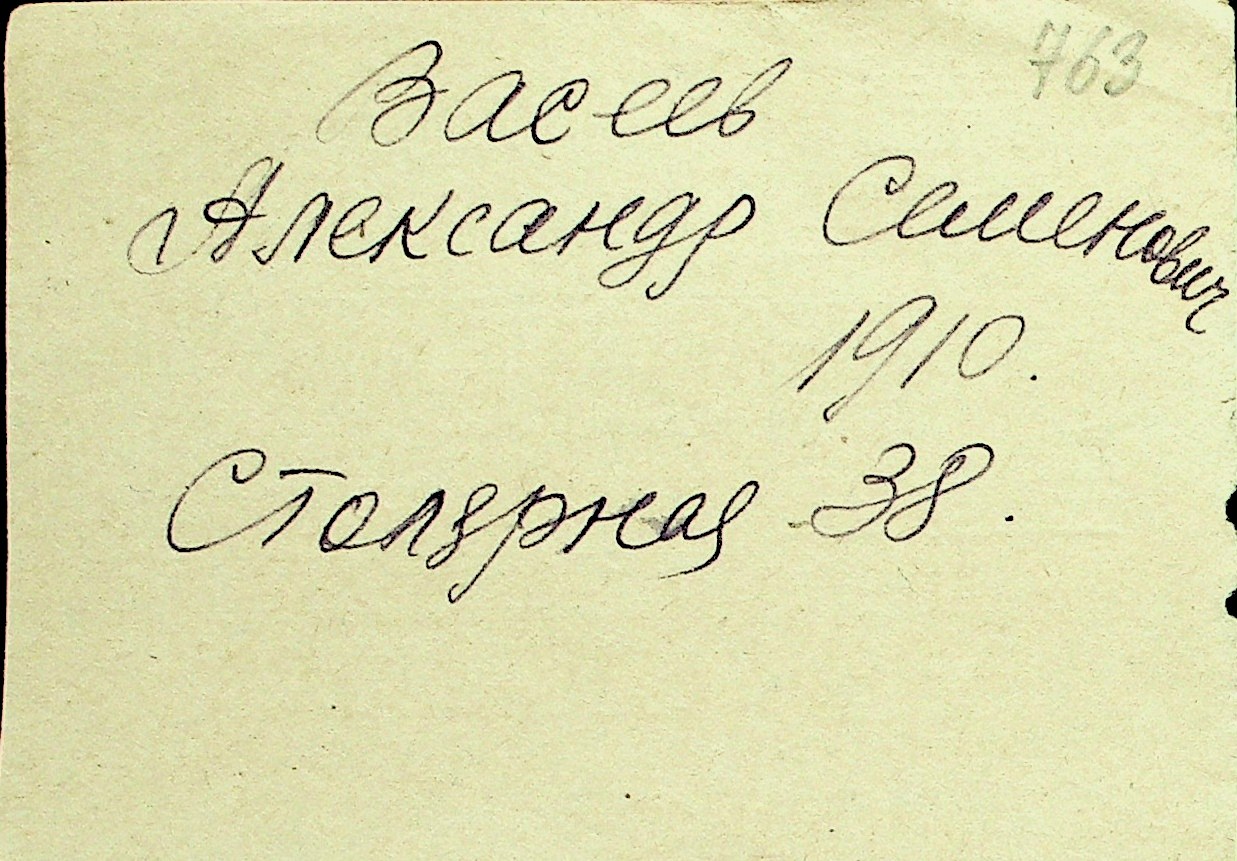 763
Васеев
Александр Семенович
1910.
Столярная 38.